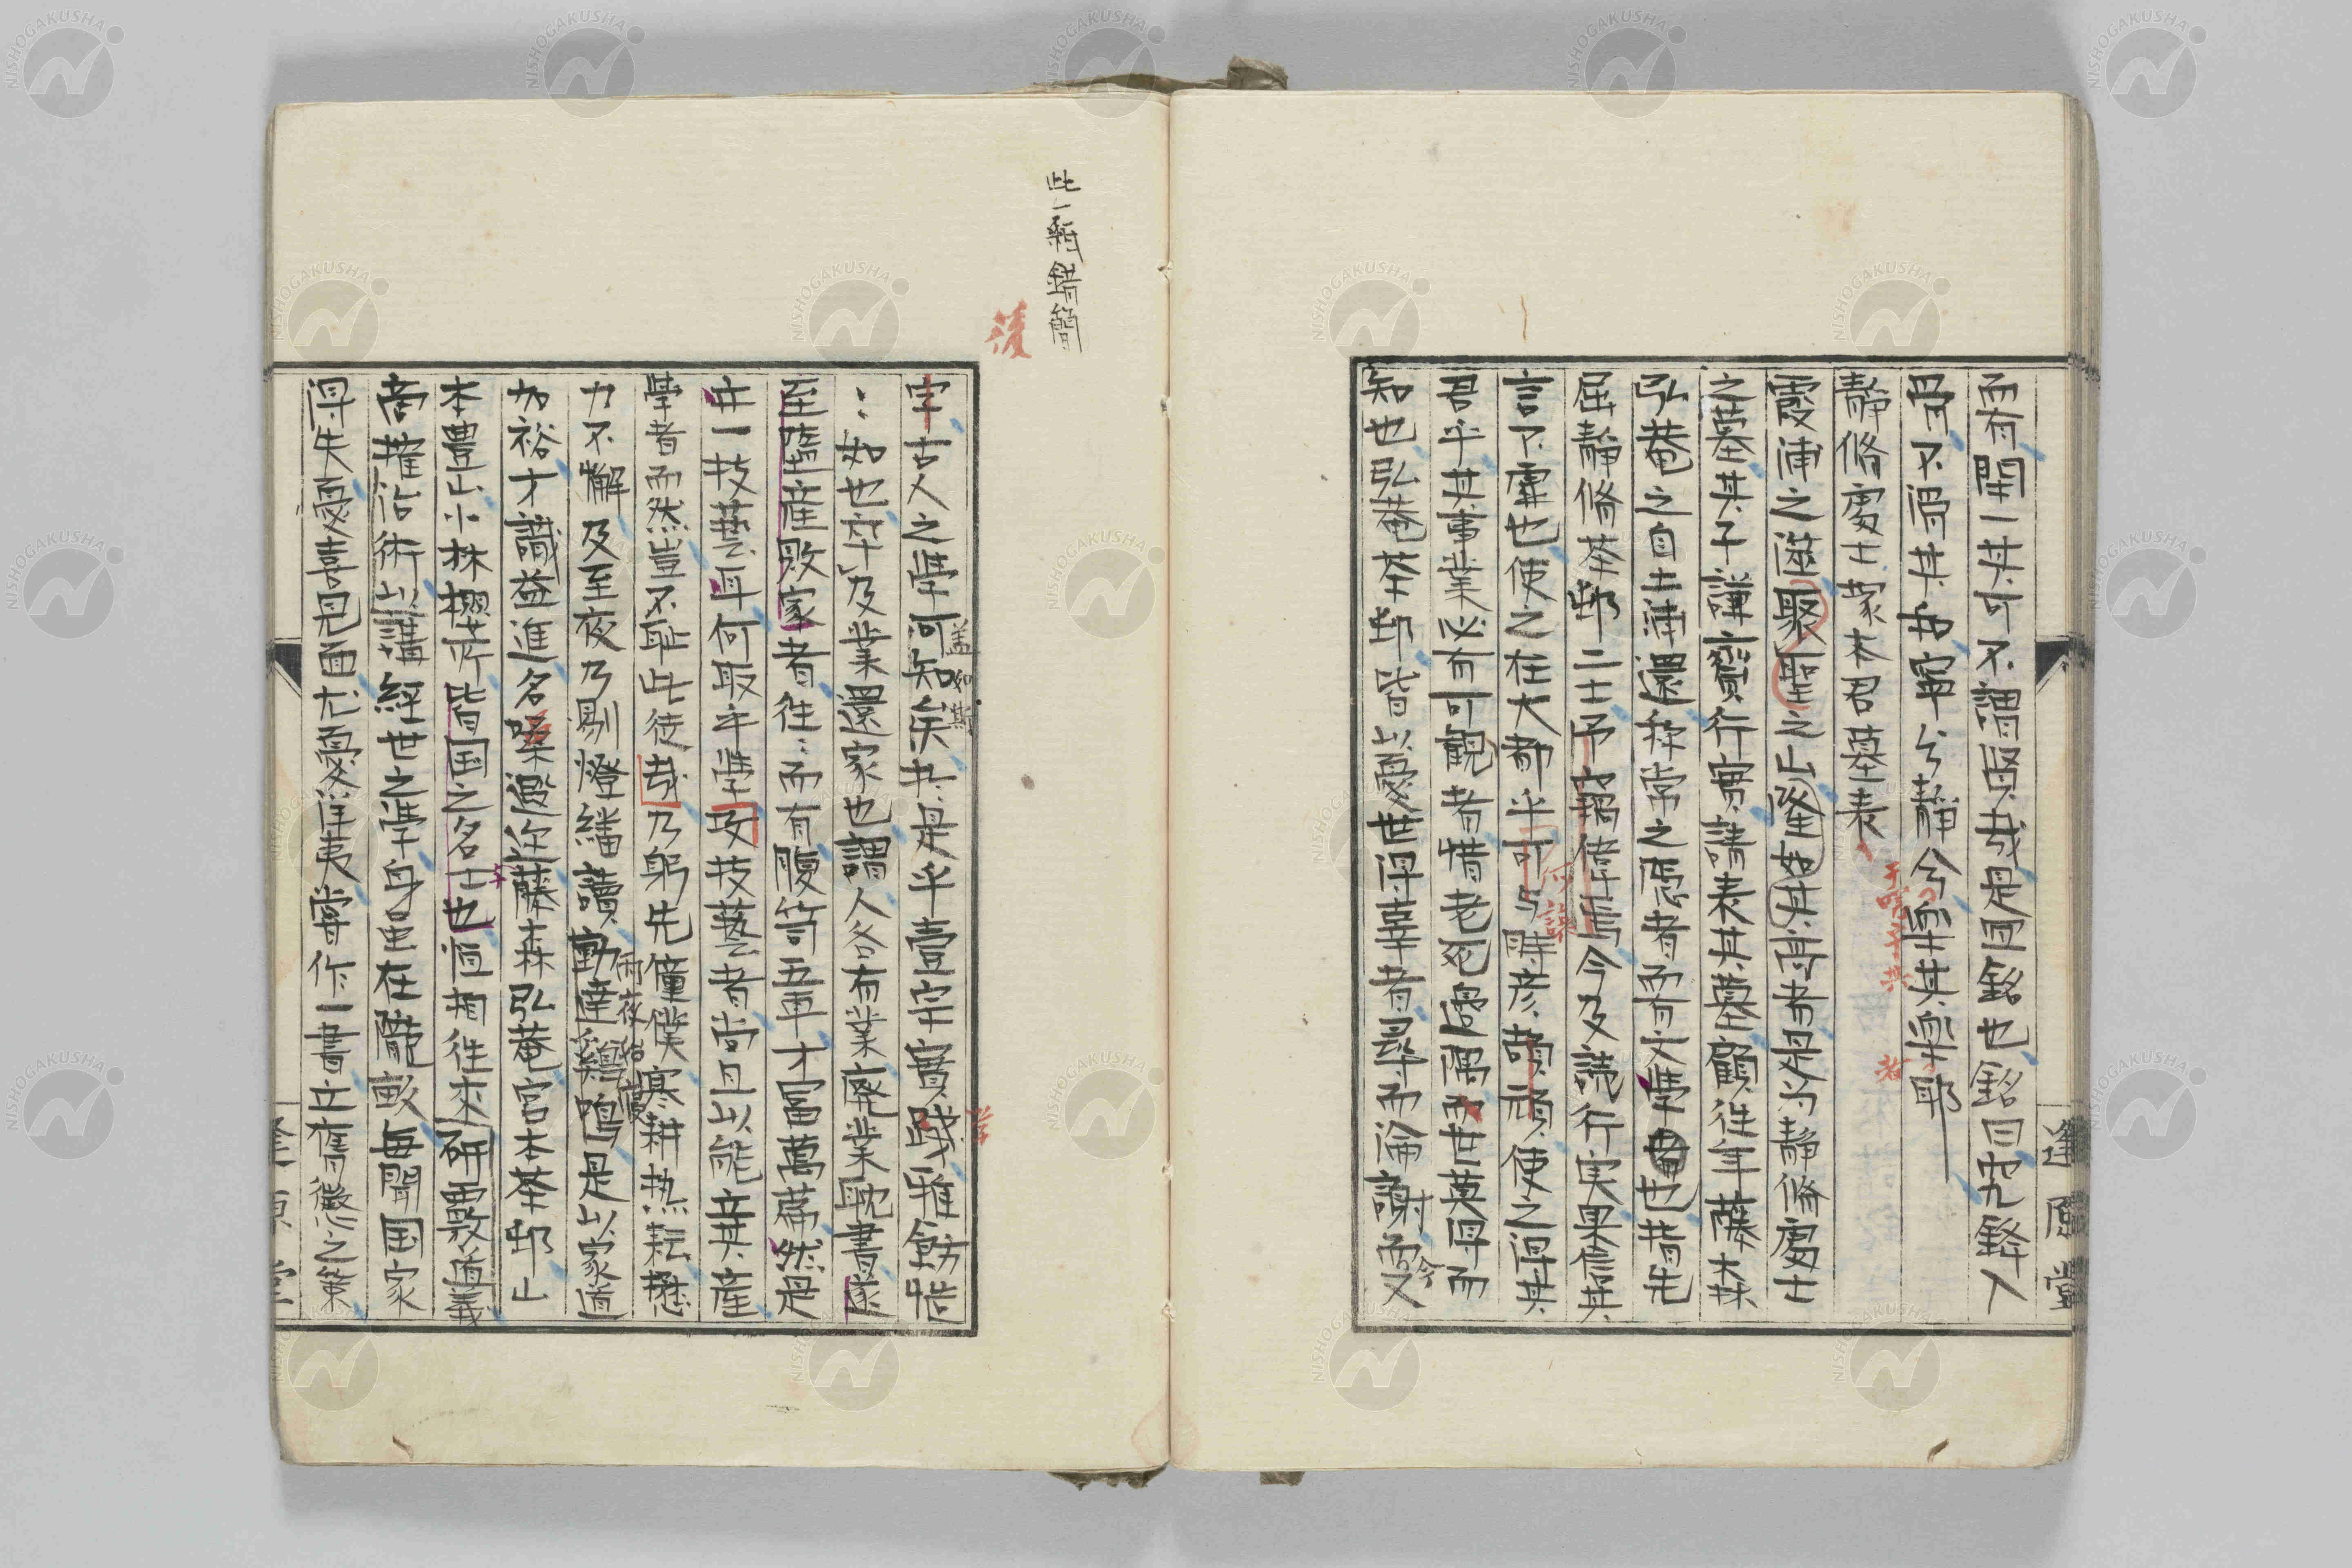 而有開一其可不謂賢哉是宜銘也銘曰究繹入
骨不為其安寧兮靜今樂其樂耶
靜脩處士蒙木君墓表
霞浦之滋聚聖之上隆如其高者是為靜脩處士
之墓其子謙齎行實請表其墓顧往年藤森
弘菴之自土浦還称常之隱者而有文學也指先
屈靜脩茶邨二士予竊偉焉今及読行実果信其
言不虛也使之在大都乎可与時彦頡頏使之得其
君乎其事業必有可観者惜老死窮隅而世莫得而
知也弘菴茶邨皆以憂世得辜者尋而淪謝而今又
此一紙錯簡
後
字古人之學何知矣其是乎壹宗實踐雅飭
蓋如斯
学
如也卒及業還家也謂人各有業廢業耽書遂
至墮產敗家者徃〻而有腹笥五車才富萬篇然是
亦一技藝耳何取乎學攻技藝者尚且以能弃其產
學者而然豈不恥此徒哉乃躬先僮僕寒耕熱耘懋
力不懈及至夜乃剔燈繙讀動達鷄鳴是以家道
雨夜
加裕才識益進名噪邇迩藤森弘菴宮本茶邨山
本豊山小林櫻所皆国之名士也洹相徃來研覈道義
商搉治術以講経世之學身虽在隴畝每聞国家
得失憂喜見面尤憂洋夷嘗作一書立膺懲之策
逢原堂